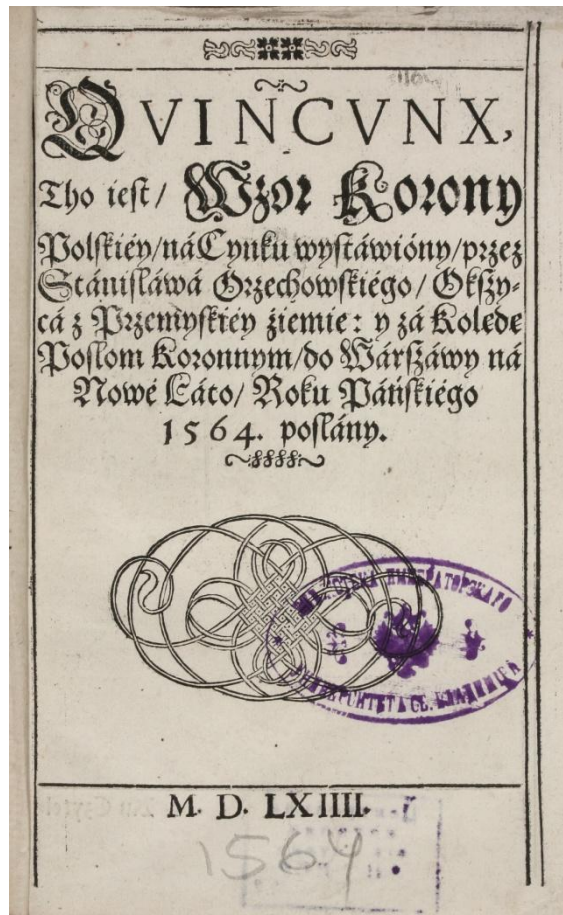 QVINCVNX,
Tho iest/ Wzor Korony
Polskiéy/ná Cynku wystáwióny/przez
Stánisłáwá Orzechowskiégo/ Okszy-
cá z Przemyskiéy źiemie: y zá Kolędę
Posłom Koronnym/do Wárszáwy ná
Nowé Láto/ Roku Páńskiégo
1564. posłány.
БИБЛІОТЕКА ИМПЕРАТОРСКАГО
УНИВЕРСИТЕТА СВ. ВЛАДИМІРА
M. D. LXIIII.
1564